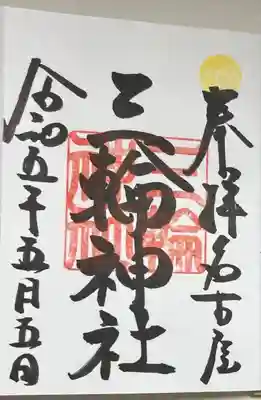 奉拝 名古屋
三輪神社
令和五年五月五日